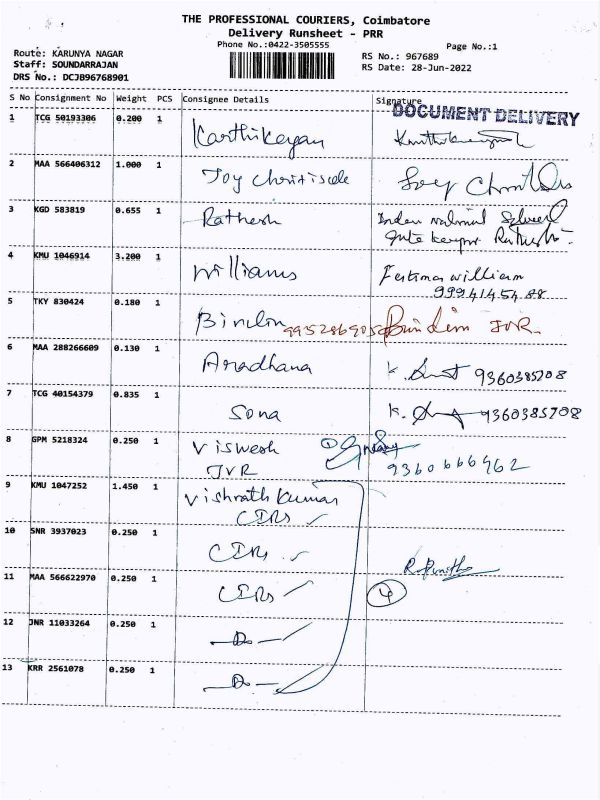 THE PROFESSIONAL COURIERS, Coimbatore
Delivery Runsheet - PRR
Phone No.:0422-3505555
Page No.:1
Route: KARUNYA NAGAR
RS No.: 967689
Staff: SOUNDARRAJAN
RS Date: 28-Jun-2022
DRS No.: DCJB96768901
S No Consignment No Weight PCS Consignee Details Signature
DOCUMENT DELIVERY
1 TCG 50193306 0.200 1 Karthikeyan
2 MAA 566406312 1.000 1 Joy
3 KGD 583819 0.655 1 Rathesh
4 KMU 1046914 3.200 1 Williams Fatima William
5 TKY 830424 0.180 1 JVR
6 MAA 288266609 0.130 1 Aradhana K. 9360385708
7 TCG 40154379 0.835 1 Sona K. 9360385708
8 GPM 5218324 0.250 1 Viswesh
JVR 9360666962
9 KMU 1047252 1.450 1 Vishrath Kumar
10 SNR 3937023 0.250 1
11 MAA 566622970 0.250 1 4
12 JNR 11033264 0.250 1
13 KRR 2561078 0.250 1